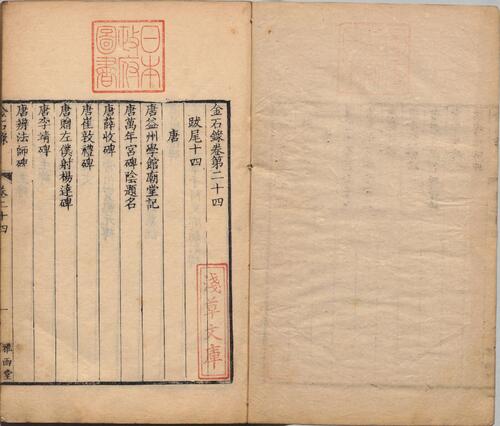 日本
政府
圖書
金石錄卷第二十四
跋尾十四
唐
唐益州學館廟堂記
唐萬年宮碑陰題名
唐薛收碑
唐崔敦禮碑
唐贈左僕射楊達碑
唐李靖碑
唐辨法師碑
金石錄 卷二十四 一 雅雨堂
淺草文庫